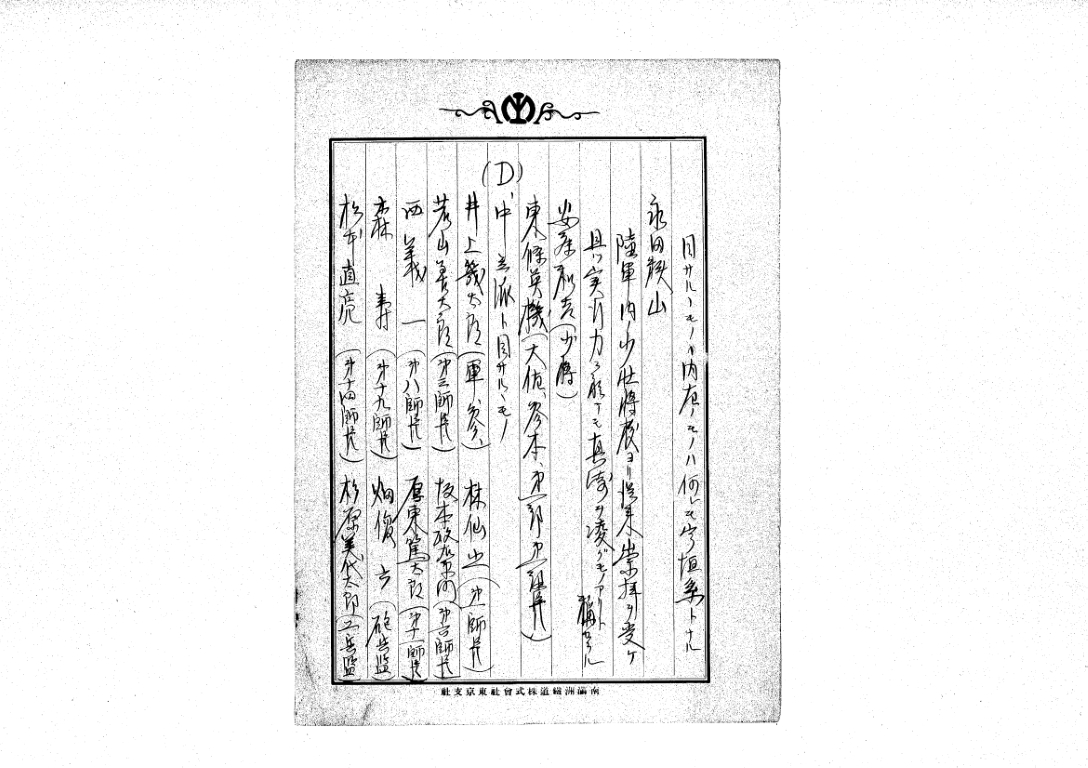 目サルヽモノ、内在ノモノハ何レモ宇垣系トナル
永田鉄山
陸軍内少壮将校ヨリ従来崇拝ヲ受ケ
且ツ実行力ニ於テモ真崎ヲ凌グモノアリト
稱セラル
安藤利吉(少将)
東條英機(大佐、参本、第一部第一課長)
(D)、中立派ト目サルヽモノ
井上幾太郎(軍、参、) 林仙之(第一師長)
若山善太郎(第三師長) 坂本政右衛門(第六師長)
西義一(第八師長) 厚東篤太郎(第十一師長)
森寿(第十九師長) 畑俊六(砲兵監)
松本直亮(第十四師長) 杉原美代太郎(工兵監)
南滿洲鐵道株式會社東京支社